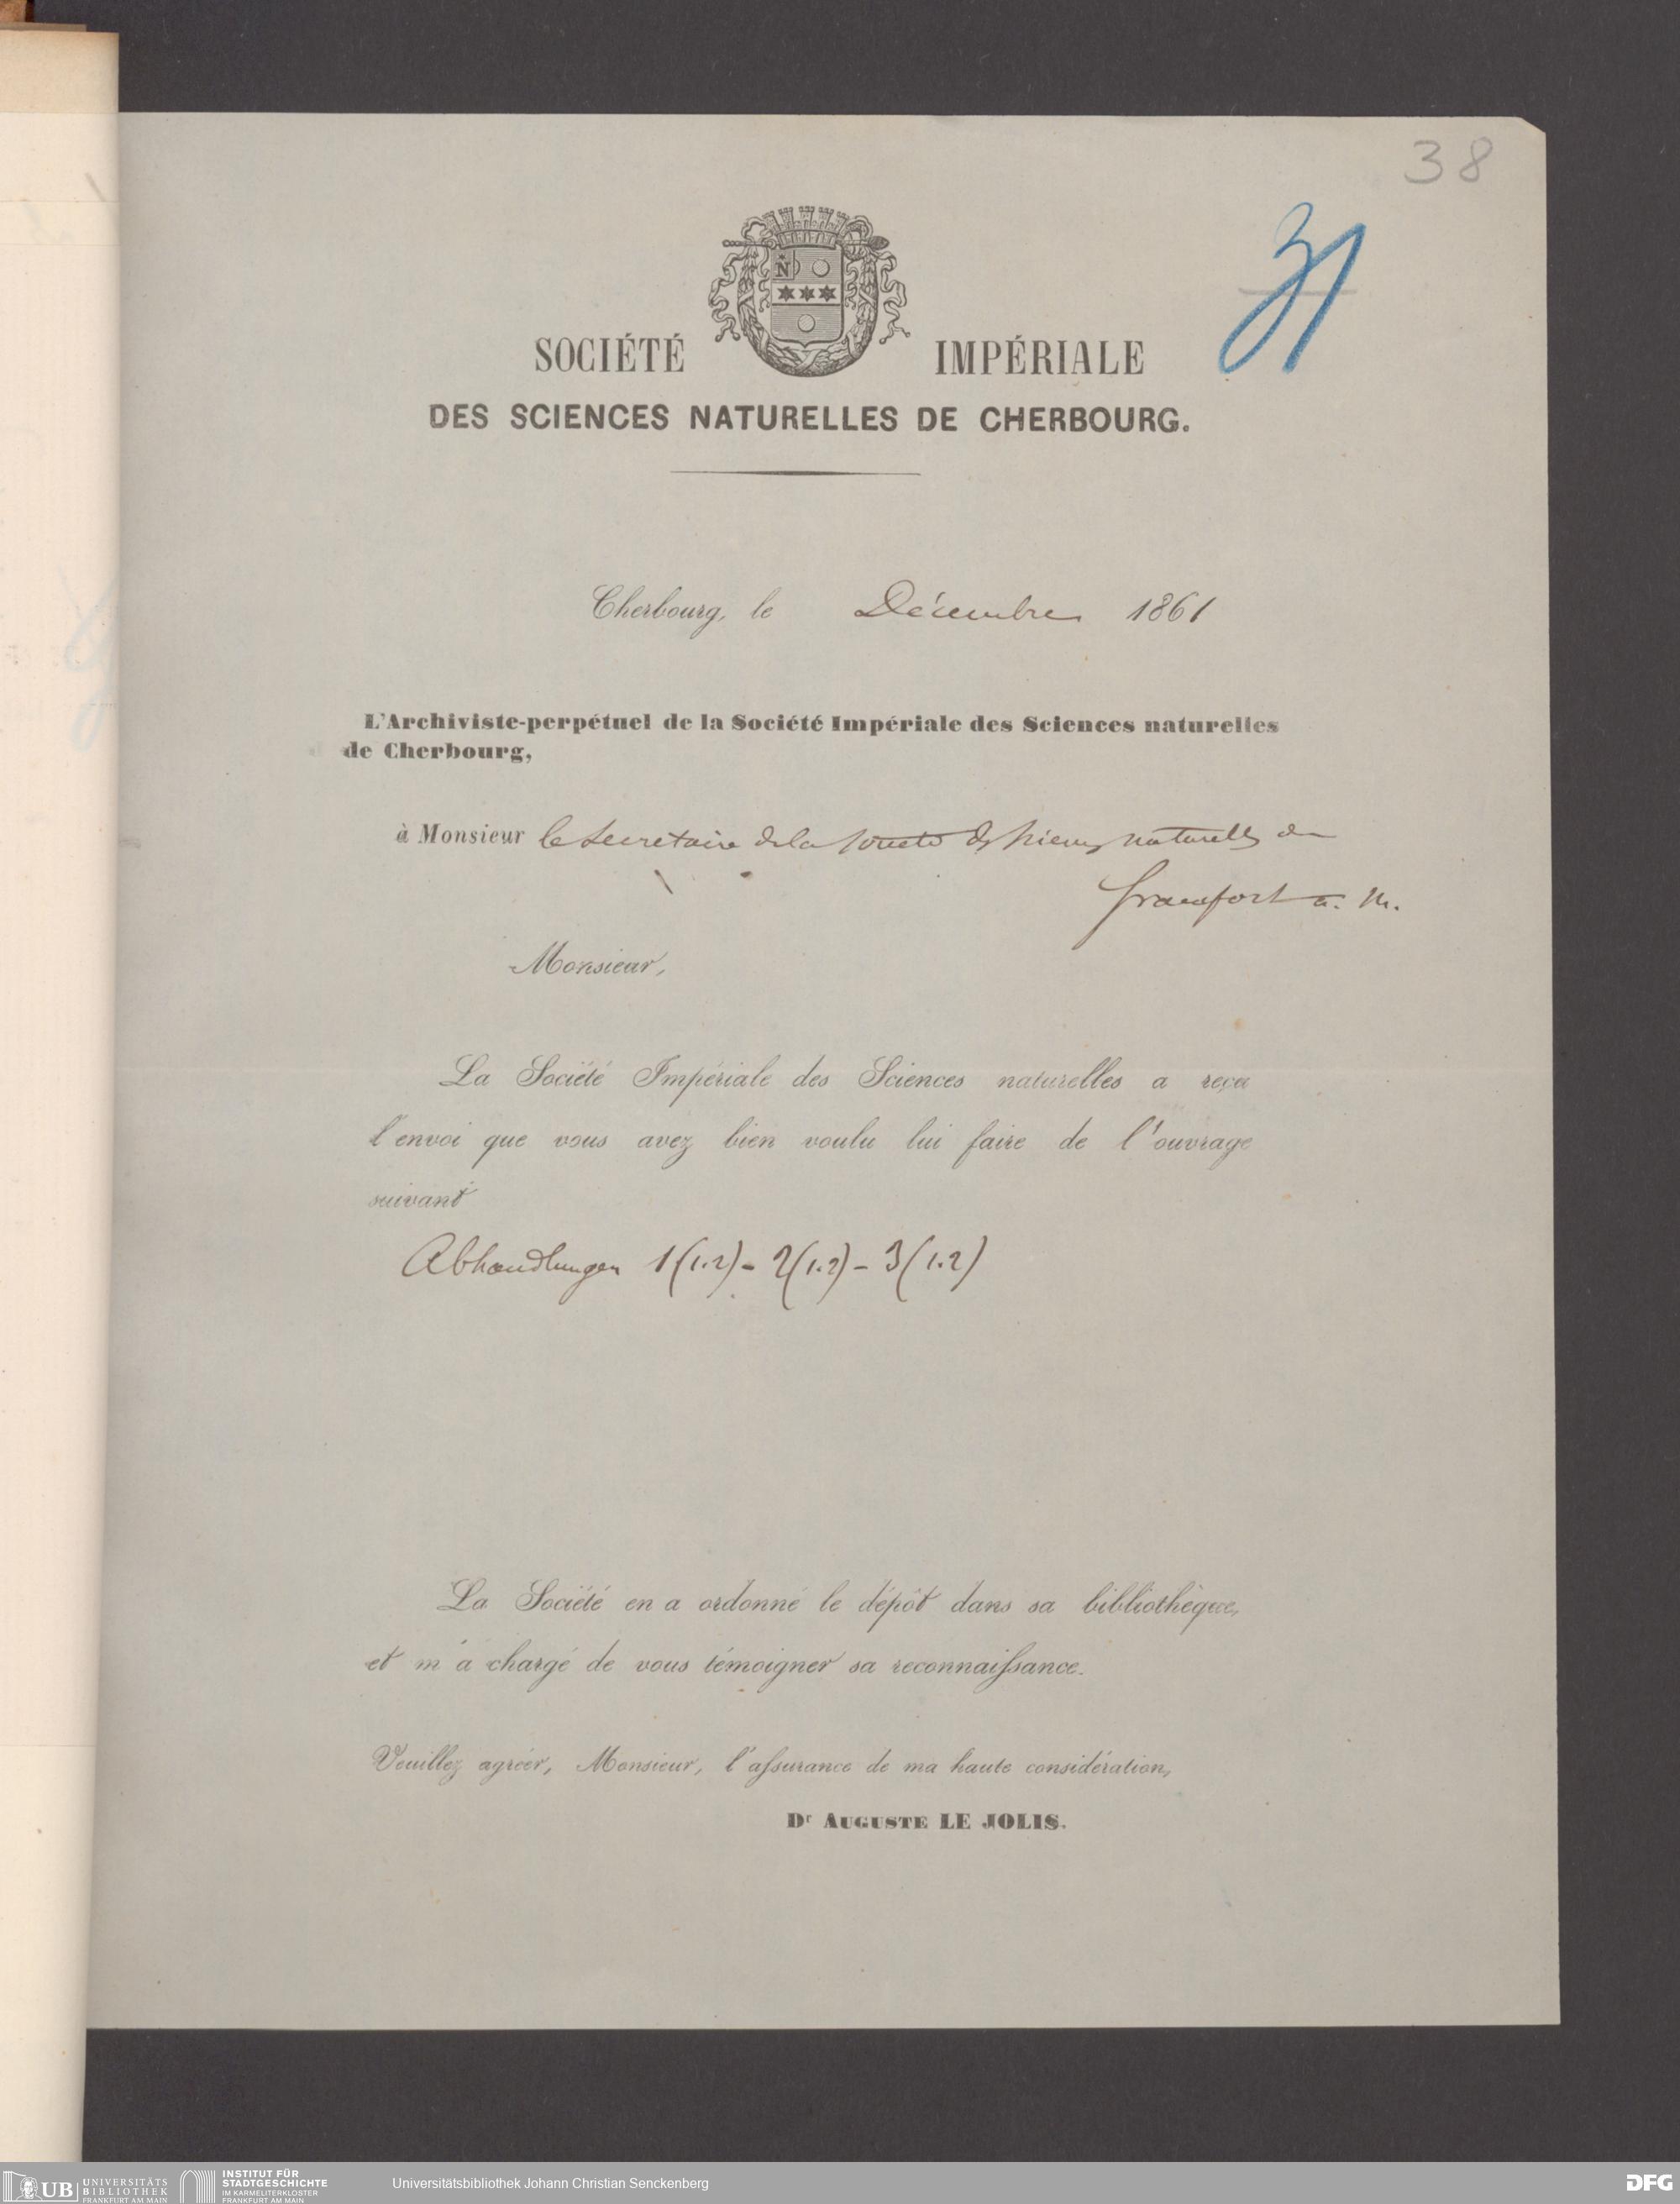 38
31
N
SOCIÉTÉ IMPÉRIALE
DES SCIENCES NATURELLES DE CHERBOURG.
Cherbourg, le Décembre 1861
L'Archiviste-perpétuel de la Société Impériale des Sciences naturelles
de Cherbourg,
à Monsieur le Secretaire de la Société des Sciences naturelles de
francfort a. M.
Monsieur,
La Société Impériale des Sciences naturelles a reçu
l'envoi que vous avez bien voulu lui faire de l'ouvrage
suivant
Abhandlungen 1(1.2) - 2(1.2) - 3(1.2)
La Société en a ordonné le dépôt dans sa bibliothèque,
et m'a chargé de vous témoigner sa reconnaissance.
Veuillez agréer, Monsieur, l'assurance de ma haute considération,
Dr AUGUSTE LE JOLIS.
UB UNIVERSITÄTS
BIBLIOTHEK
FRANKFURT AM MAIN
INSTITUT FÜR
STADTGESCHICHTE
IM KARMELITERKLOSTER
FRANKFURT AM MAIN
Universitätsbibliothek Johann Christian Senckenberg
DFG